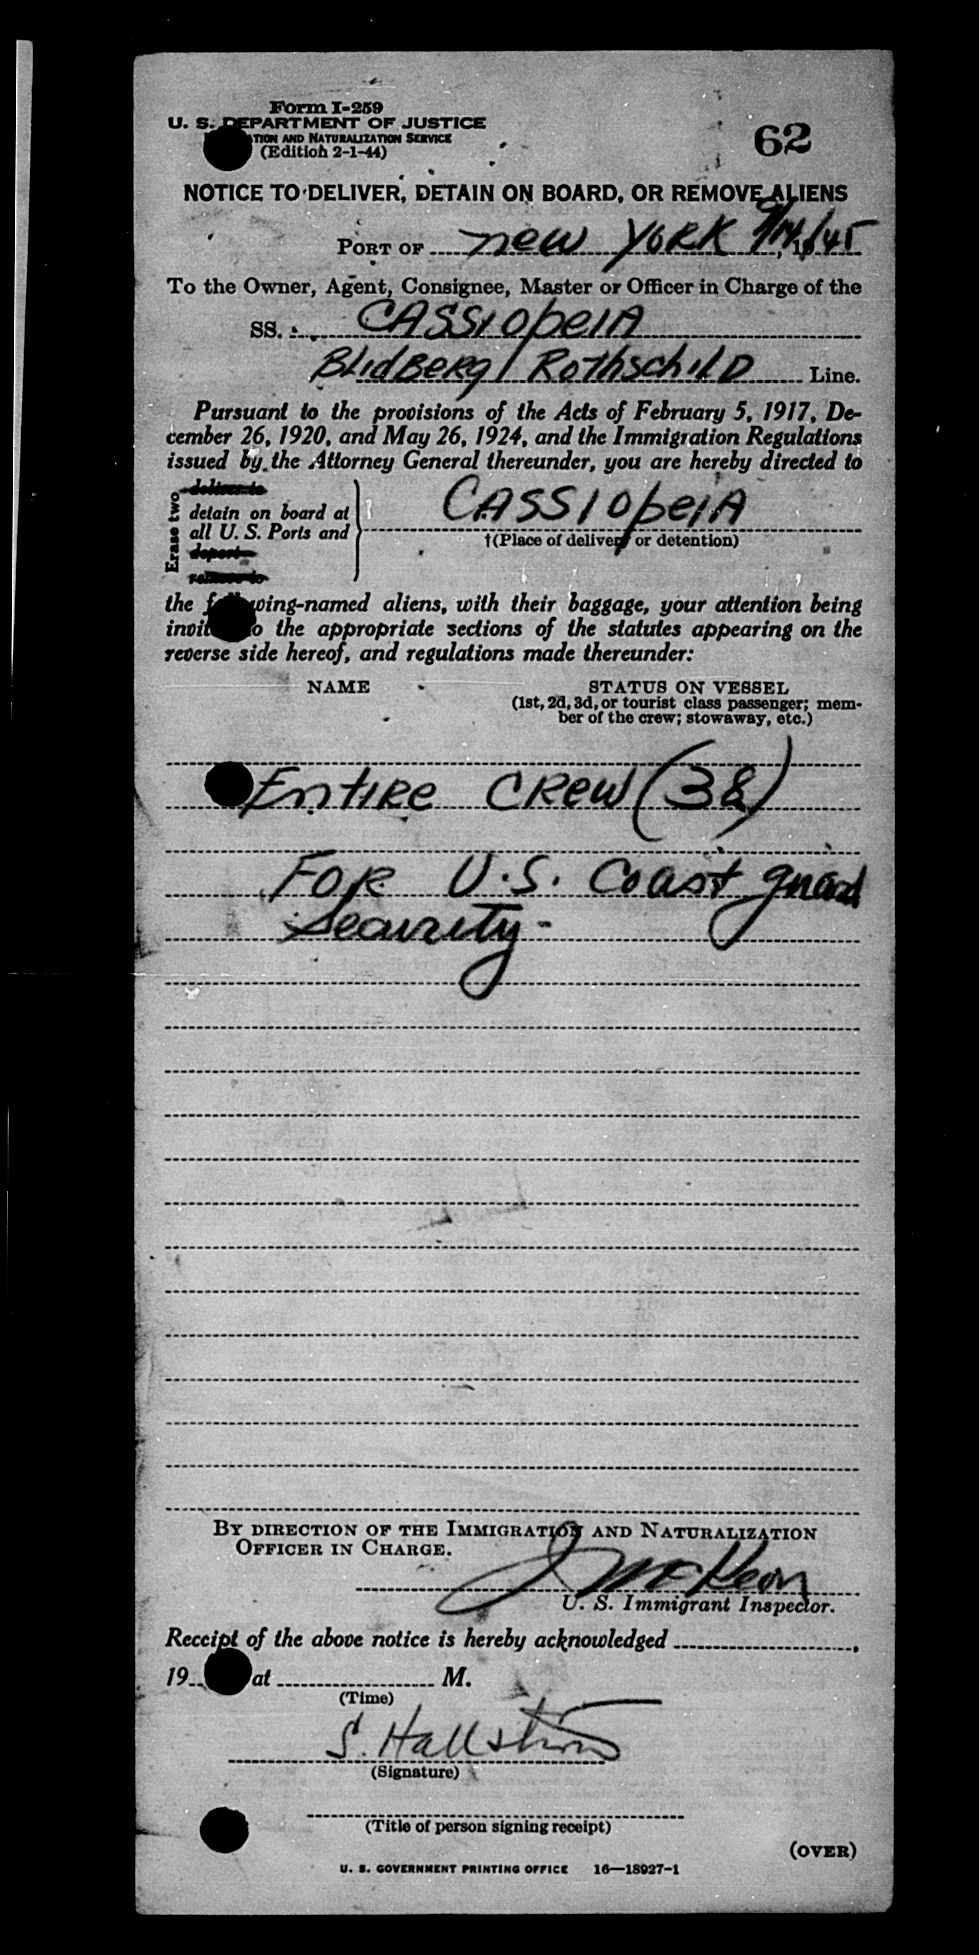 Form I-259
U. S. DEPARTMENT OF JUSTICE
AND NATURALIZATION SERVICE
(Edition 2-1-44)
62
NOTICE TO DELIVER, DETAIN ON BOARD, OR REMOVE ALIENS
PORT OF new YORK
To the Owner, Agent, Consignee, Master or Officer in Charge of the
SS. CASSIOpeiA
BLidBeRg Rothschild Line.
Pursuant to the provisions of the Acts of February 5, 1917, De-
cember 26, 1920, and May 26, 1924, and the Immigration Regulations
issued by the Attorney General thereunder, you are hereby directed to
Erase two
deliver to
detain on board at
all U. S. Ports and
deport
remove to
CASSIOpeiA
†(Place of delivery or detention)
the following-named aliens, with their baggage, your attention being
invited to the appropriate sections of the statutes appearing on the
reverse side hereof, and regulations made thereunder:
NAME
STATUS ON VESSEL
(1st, 2d, 3d, or tourist class passenger; mem-
ber of the crew; stowaway, etc.)
Entire CRew (38)
FOR U.S. Coast guard
Security-
BY DIRECTION OF THE IMMIGRATION AND NATURALIZATION
OFFICER IN CHARGE.
J McKeon
U. S. Immigrant Inspector.
Receipt of the above notice is hereby acknowledged ,
19 at M.
(Time)
S. Hallström
(Signature)
(Title of person signing receipt)
(OVER)
U. S. GOVERNMENT PRINTING OFFICE 16—18927-1